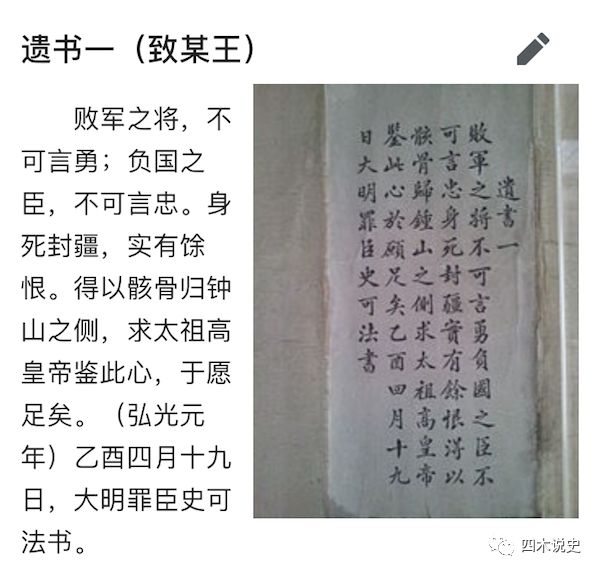 遗书一（致某王）
败军之将，不
可言勇；负国之
臣，不可言忠。身
死封疆，实有馀
恨。得以骸骨归钟
山之侧，求太祖高
皇帝鉴此心，于愿
足矣。（弘光元
年）乙酉四月十九
日，大明罪臣史可
法书。
遺書一
敗軍之將不可言勇負國之臣不
可言忠身死封疆實有餘恨得以
骸骨歸鍾山之側求太祖高皇帝
鑒此心於願足矣乙酉四月十九
日大明罪臣史可法書
四木说史